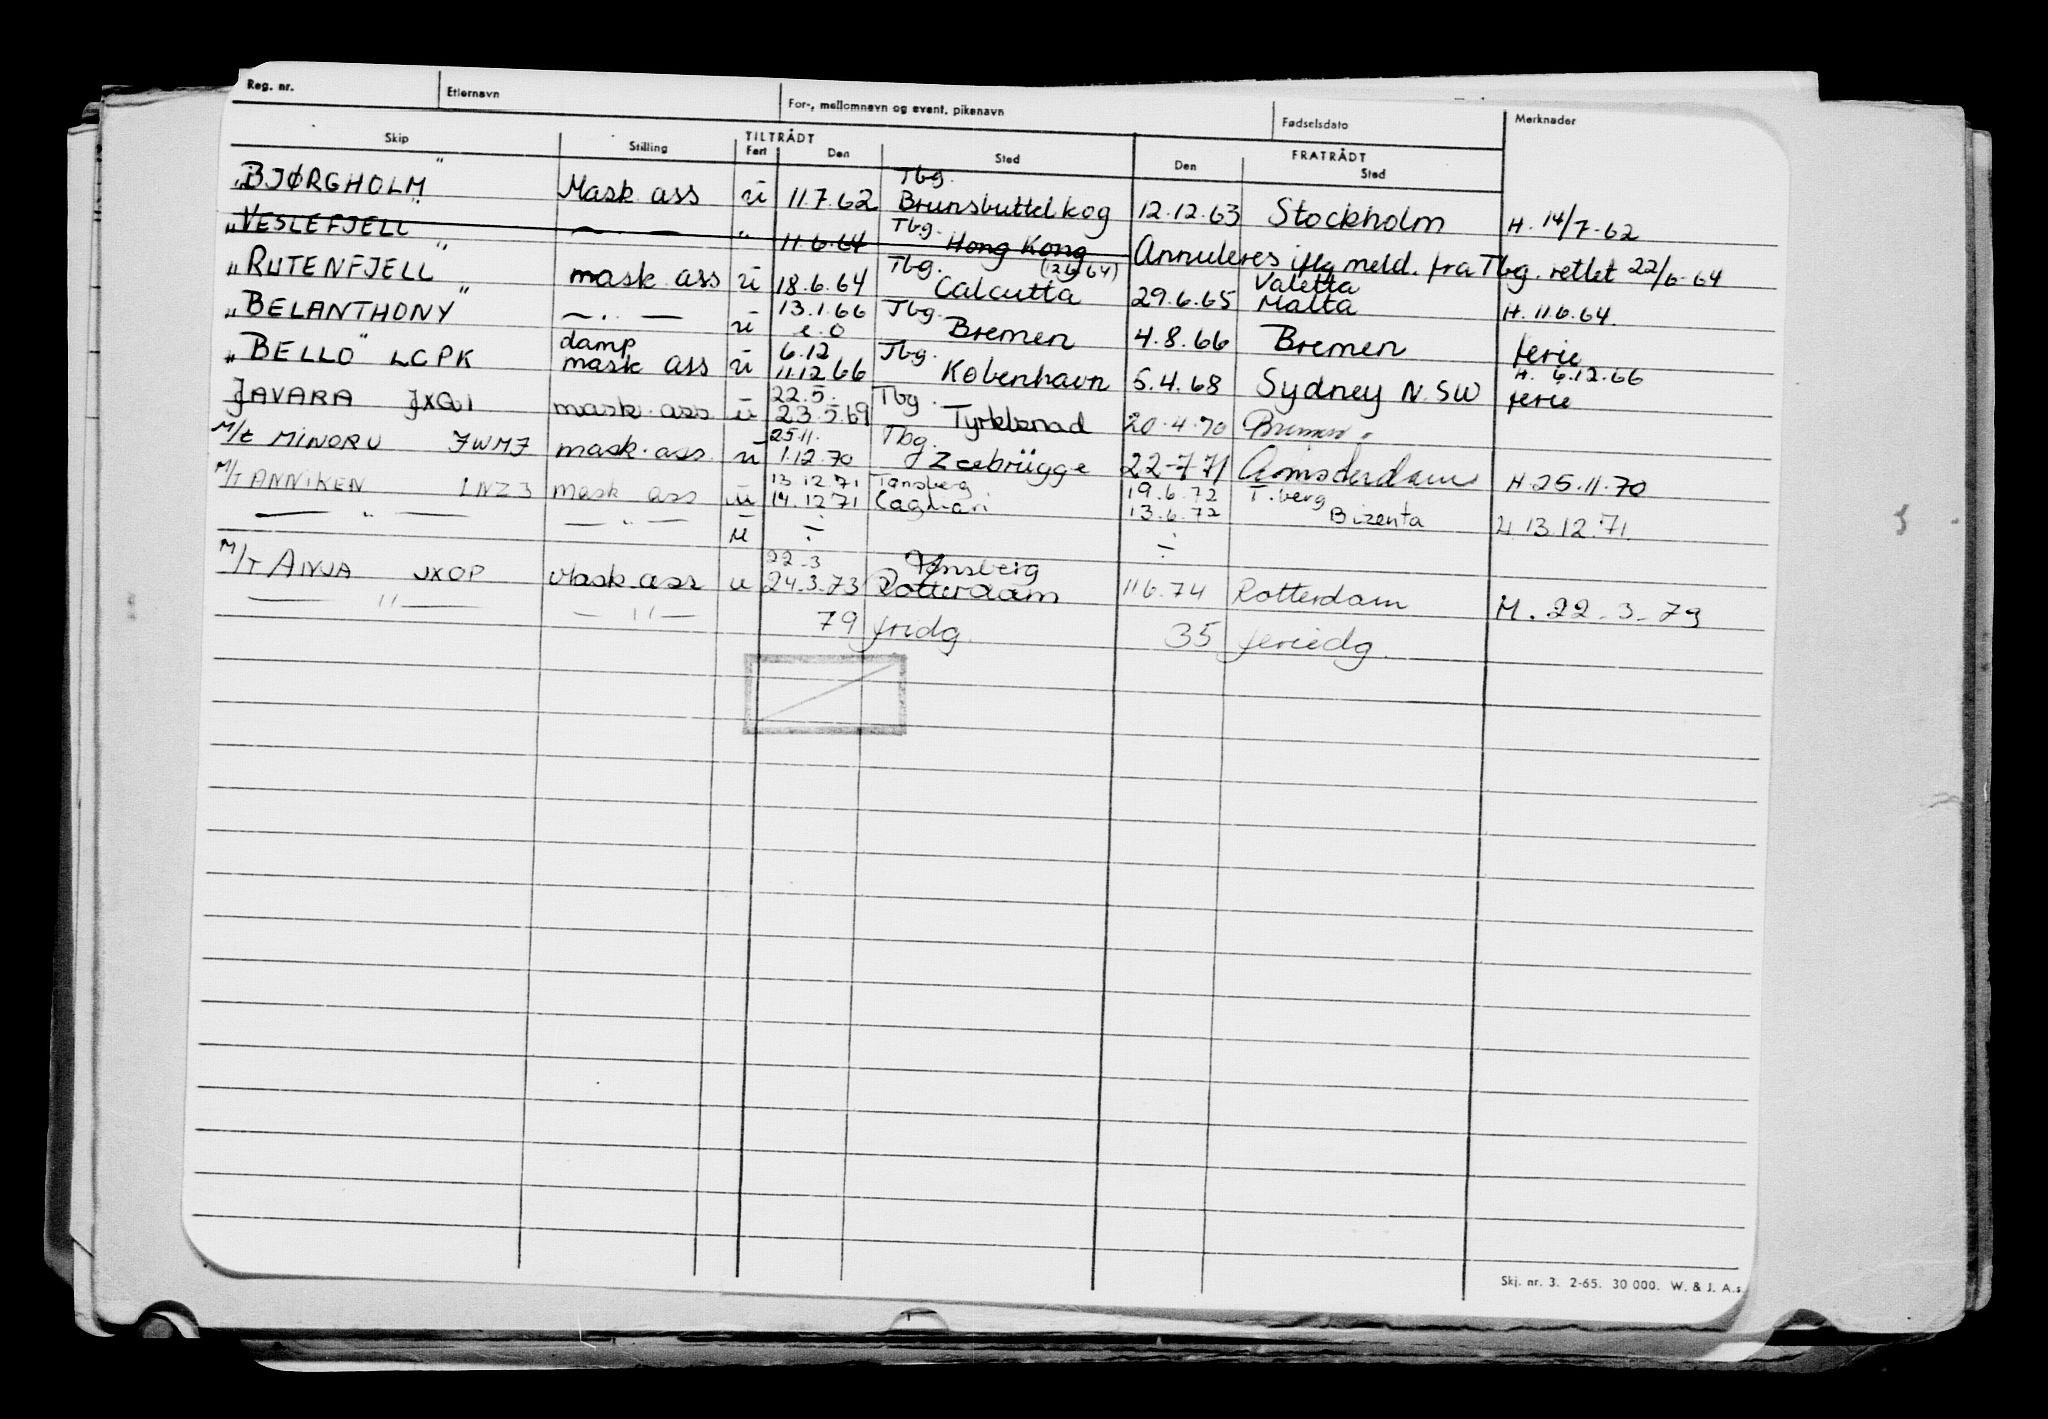 Reg. nr. Etternavn For-, mellomnavn og event. pikenavn Fødselsdato Merknader
Skip Stilling TILTRÅDT Fart Den Sted FRATRÅDT Den Sted
"BJØRGHOLM" Mask ass u 11.7.62 Tbg. Brunsbuttelkog 12.12.63 Stockholm H. 14/7-62
"VESLEFJELL" — " — " 11.6.64 Tbg. Hong Kong (12.6.64) Annuleres iflg meld. fra Tbg. rettet 22/6-64
"RUTENFJELL" mask ass u 18.6.64 Tbg. Calcutta 29.6.65 Valetta Malta H. 11.6.64.
"BELANTHONY" — " — u 13.1.66 e.o Tbg. Bremen 4.8.66 Bremen ferie
"BELLO" LCPK damp mask ass u 6.12 11.12.66 Tbg. København 5.4.68 Sydney N.SW H. 6.12.66 ferie
JAVARA JXQI mask ass u 22.5. 23.5.69 Tbg. Tyrkland 20.4.70 Bremen
M/t MINORU JWMJ mask. ass. u 25.11. 1.12.70 Tbg. Zeebrügge 22-7 71 Amsterdam H 25.11.70
M/T ANNIKEN LNZ3 mask ass u 13.12.71 14.12.71 Tønsberg Cagliari 19.6.72 13.6.72 T.berg Bizenta H 13.12.71.
— " — — " — u ÷ ÷
M/T ANJA JXOP Mask ass u 22-3 24.3.73 Tønsberg Rotterdam 11.6.74 Rotterdam M. 22-3-73
— " — — " — 79 fridg. 35 feriedg.
Skj. nr. 3. 2-65. 30 000. W. & J. A.s